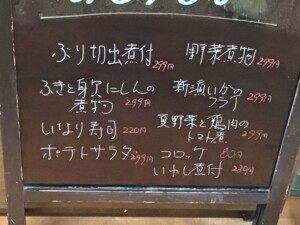 ぶり切出煮付 299円
野菜煮物 299円
ふきと身欠にしんの
煮物 299円
新漬いかの
フライ 299円
いなり寿司 220円
夏野菜と鶏肉の
トマト煮 299円
ポテトサラダ 299円
コロッケ 80円
いわし煮付 239円